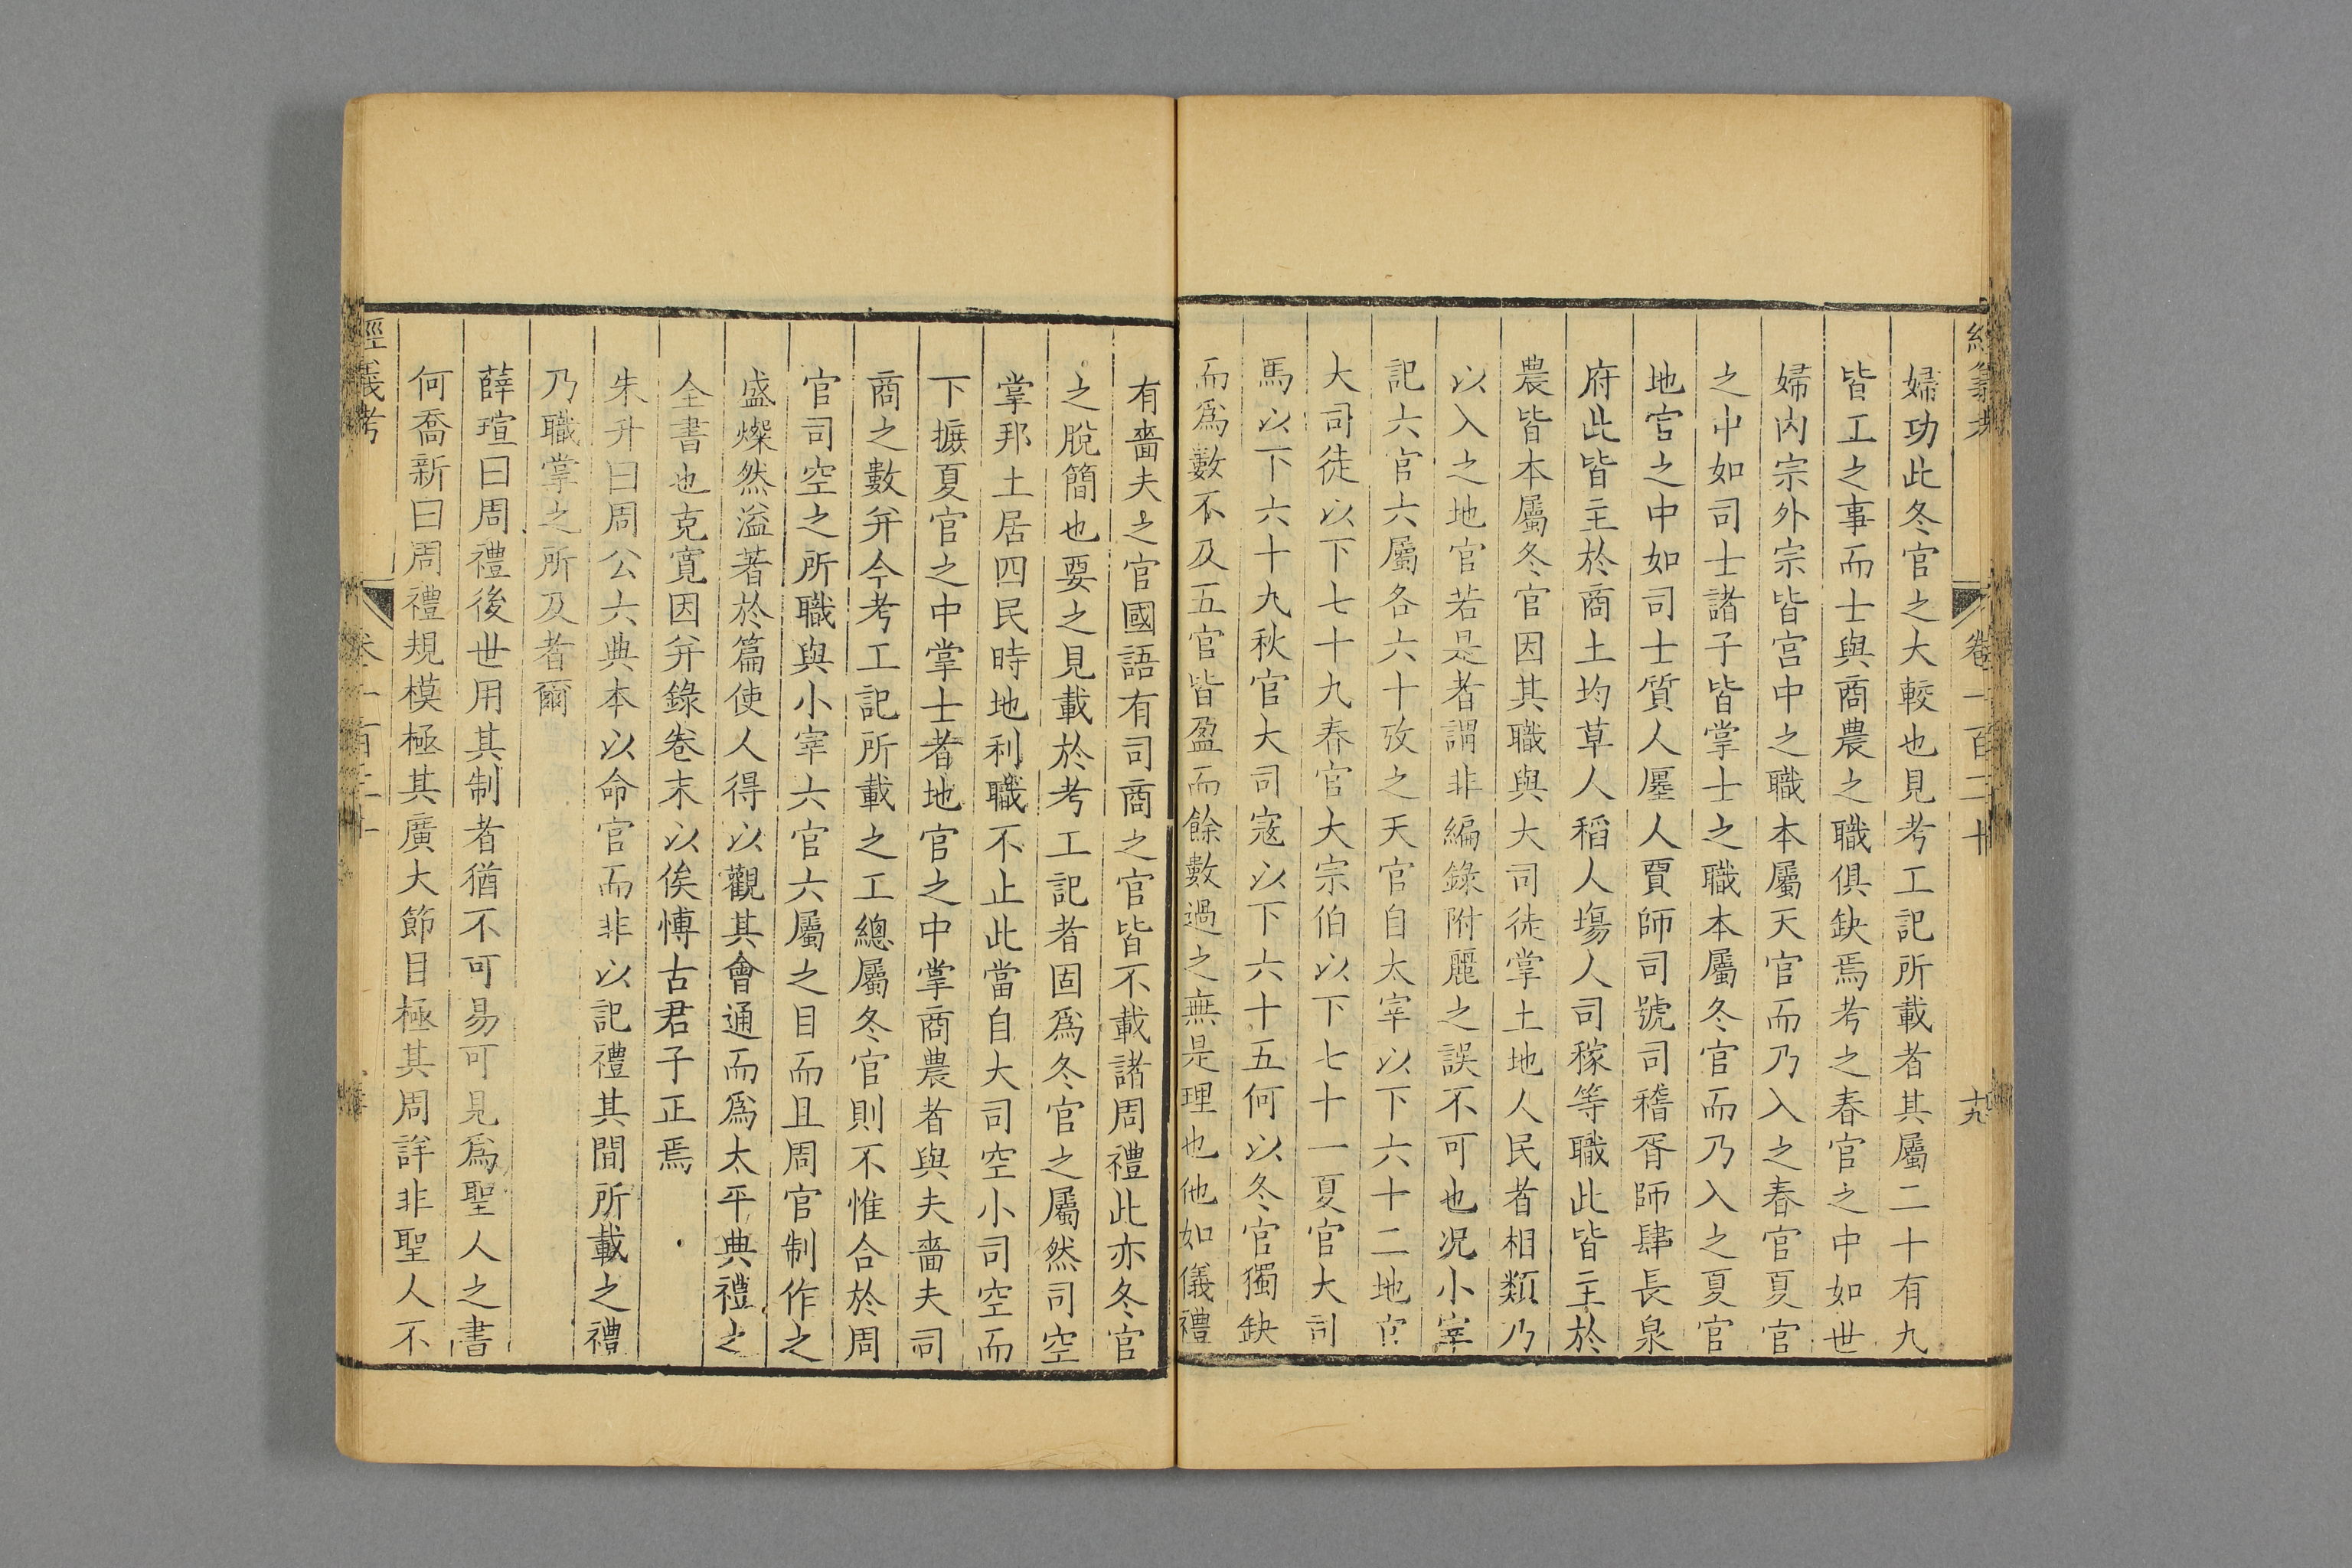 經義考
卷一百二十
十九
婦功此冬官之大較也見考工記所載者其屬二十有九
皆工之事而士與商農之職俱缺焉考之春官之中如世
婦內宗外宗皆宮中之職本屬天官而乃入之春官夏官
之中如司士諸子皆掌士之職本屬冬官而乃入之夏官
地官之中如司士質人廛人賈師司號司稽胥師肆長泉
府此皆主於商土均草人稻人塲人司稼等職此皆主於
農皆本屬冬官因其職與大司徒掌土地人民者相類乃
以入之地官若是者謂非編錄附麗之誤不可也况小宰
記六官六屬各六十攷之天官自太宰以下六十二地官
大司徒以下七十九春官大宗伯以下七十一夏官大司
馬以下六十九秋官大司寇以下六十五何以冬官獨缺
而爲數不及五官皆盈而餘數過之無是理也他如儀禮
有嗇夫之官國語有司商之官皆不載諸周禮此亦冬官
之脫簡也要之見載於考工記者固爲冬官之屬然司空
掌邦土居四民時地利職不止此當自大司空小司空而
下摭夏官之中掌士者地官之中掌商農者與夫嗇夫司
商之數并今考工記所載之工總屬冬官則不惟合於周
官司空之所職與小宰六官六屬之目而且周官制作之
盛燦然溢著於篇使人得以觀其會通而爲太平典禮之
全書也克寬因并錄卷末以俟博古君子正焉
朱升曰周公六典本以命官而非以記禮其間所載之禮
乃職掌之所及者爾
薛瑄曰周禮後世用其制者猶不可易可見爲聖人之書
何喬新曰周禮規模極其廣大節目極其周詳非聖人不
經義考
卷一百二十